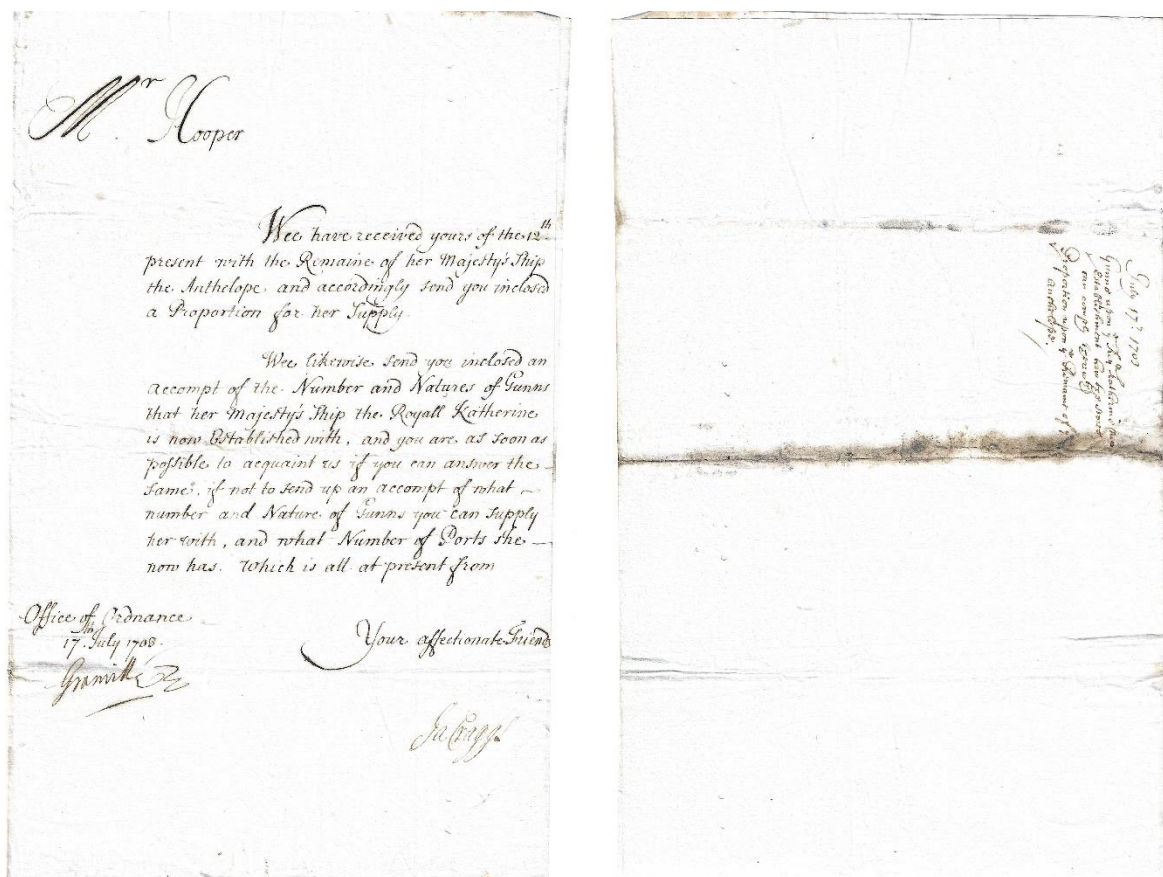 Mr. Hooper
Wee have received yours of the 12th
present with the Remaine of her Majesty's Ship
the Anthelope, and accordingly send you inclosed
a Proportion for her Supply.
Wee likewise send you inclosed an
Accompt of the Number and Natures of Gunns
that her Majesty's Ship the Royall Katherine
is now Established with, and you are as soon as
possible to acquaint us if you can answer the
same, if not to send up an Accompt of what
number and Nature of Gunns you can supply
her with, and what Number of Ports she
now has. Which is all at present from
Office of Ordnance
17th July 1703.
Your affectionate Friends
Granville
Ja Craggs
July 17th 1703
Gunns upon ye Katherine's
Establishment how
can comply
Proportion upon ye Remains of ye
Anthelope.